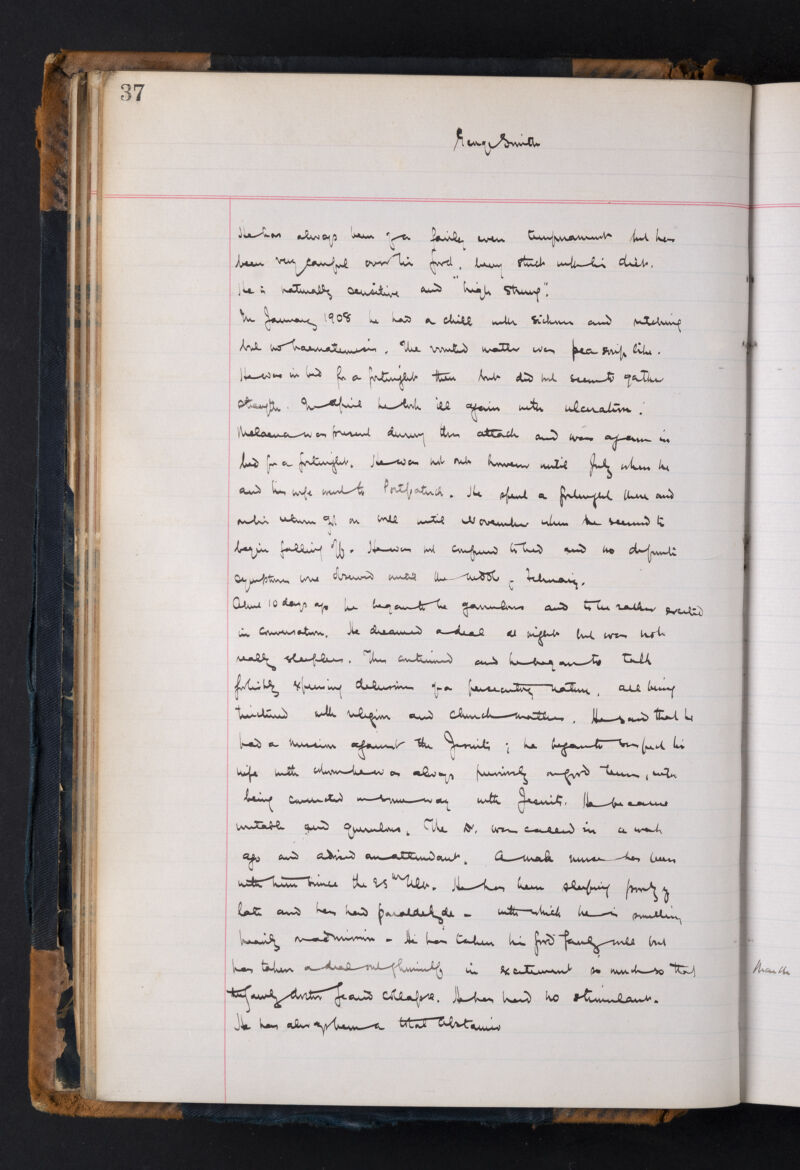 37
George Smith
He has always been of a fairly even temperament but has
been very careful over his food, being strict with his diet.
He is naturally sensitive and "high strung".
In January 1908 he had a chill with sickness and retching
but no haematemesis. The vomited matter was pea soup like.
He was in bed for a fortnight then but did not seem to gather
strength. In April he took ill again with ulceration.
Melaena was present during this attack and was again in
bed for a fortnight. He was not out however until July when he
and his wife went to Portpatrick. He spent a fortnight there and
on his return got on well until November when he seemed to
begin falling off. He was not confined to bed and no definite
symptoms were observed until the middle of February.
About 10 days ago he began to be garrulous and to be rather excited
in conversation. He dreamed a deal at night but was not
really sleepless. This continued and he began to talk
foolishly expressing delusions of a persecuting nature, all being
tinctured with religion and church matters. He said that he
had a mission against the Jesuits; he began to suspect his
wife with whom he was always previously on good terms, with
being connected in some way with Jesuits. He became
irritable and querulous. The Dr. was called in a week
ago and advised an attendant. A male nurse has been
with him since the 25th Ult. He has been sleeping poorly of
late and has had paraldehyde - with which he is smelling
heavily on admission - He has taken his food fairly well but
has taken a deal out of himself in excitement so much so that
the family doctor feared collapse. He has had no stimulant.
He has always been a total abstainer
March